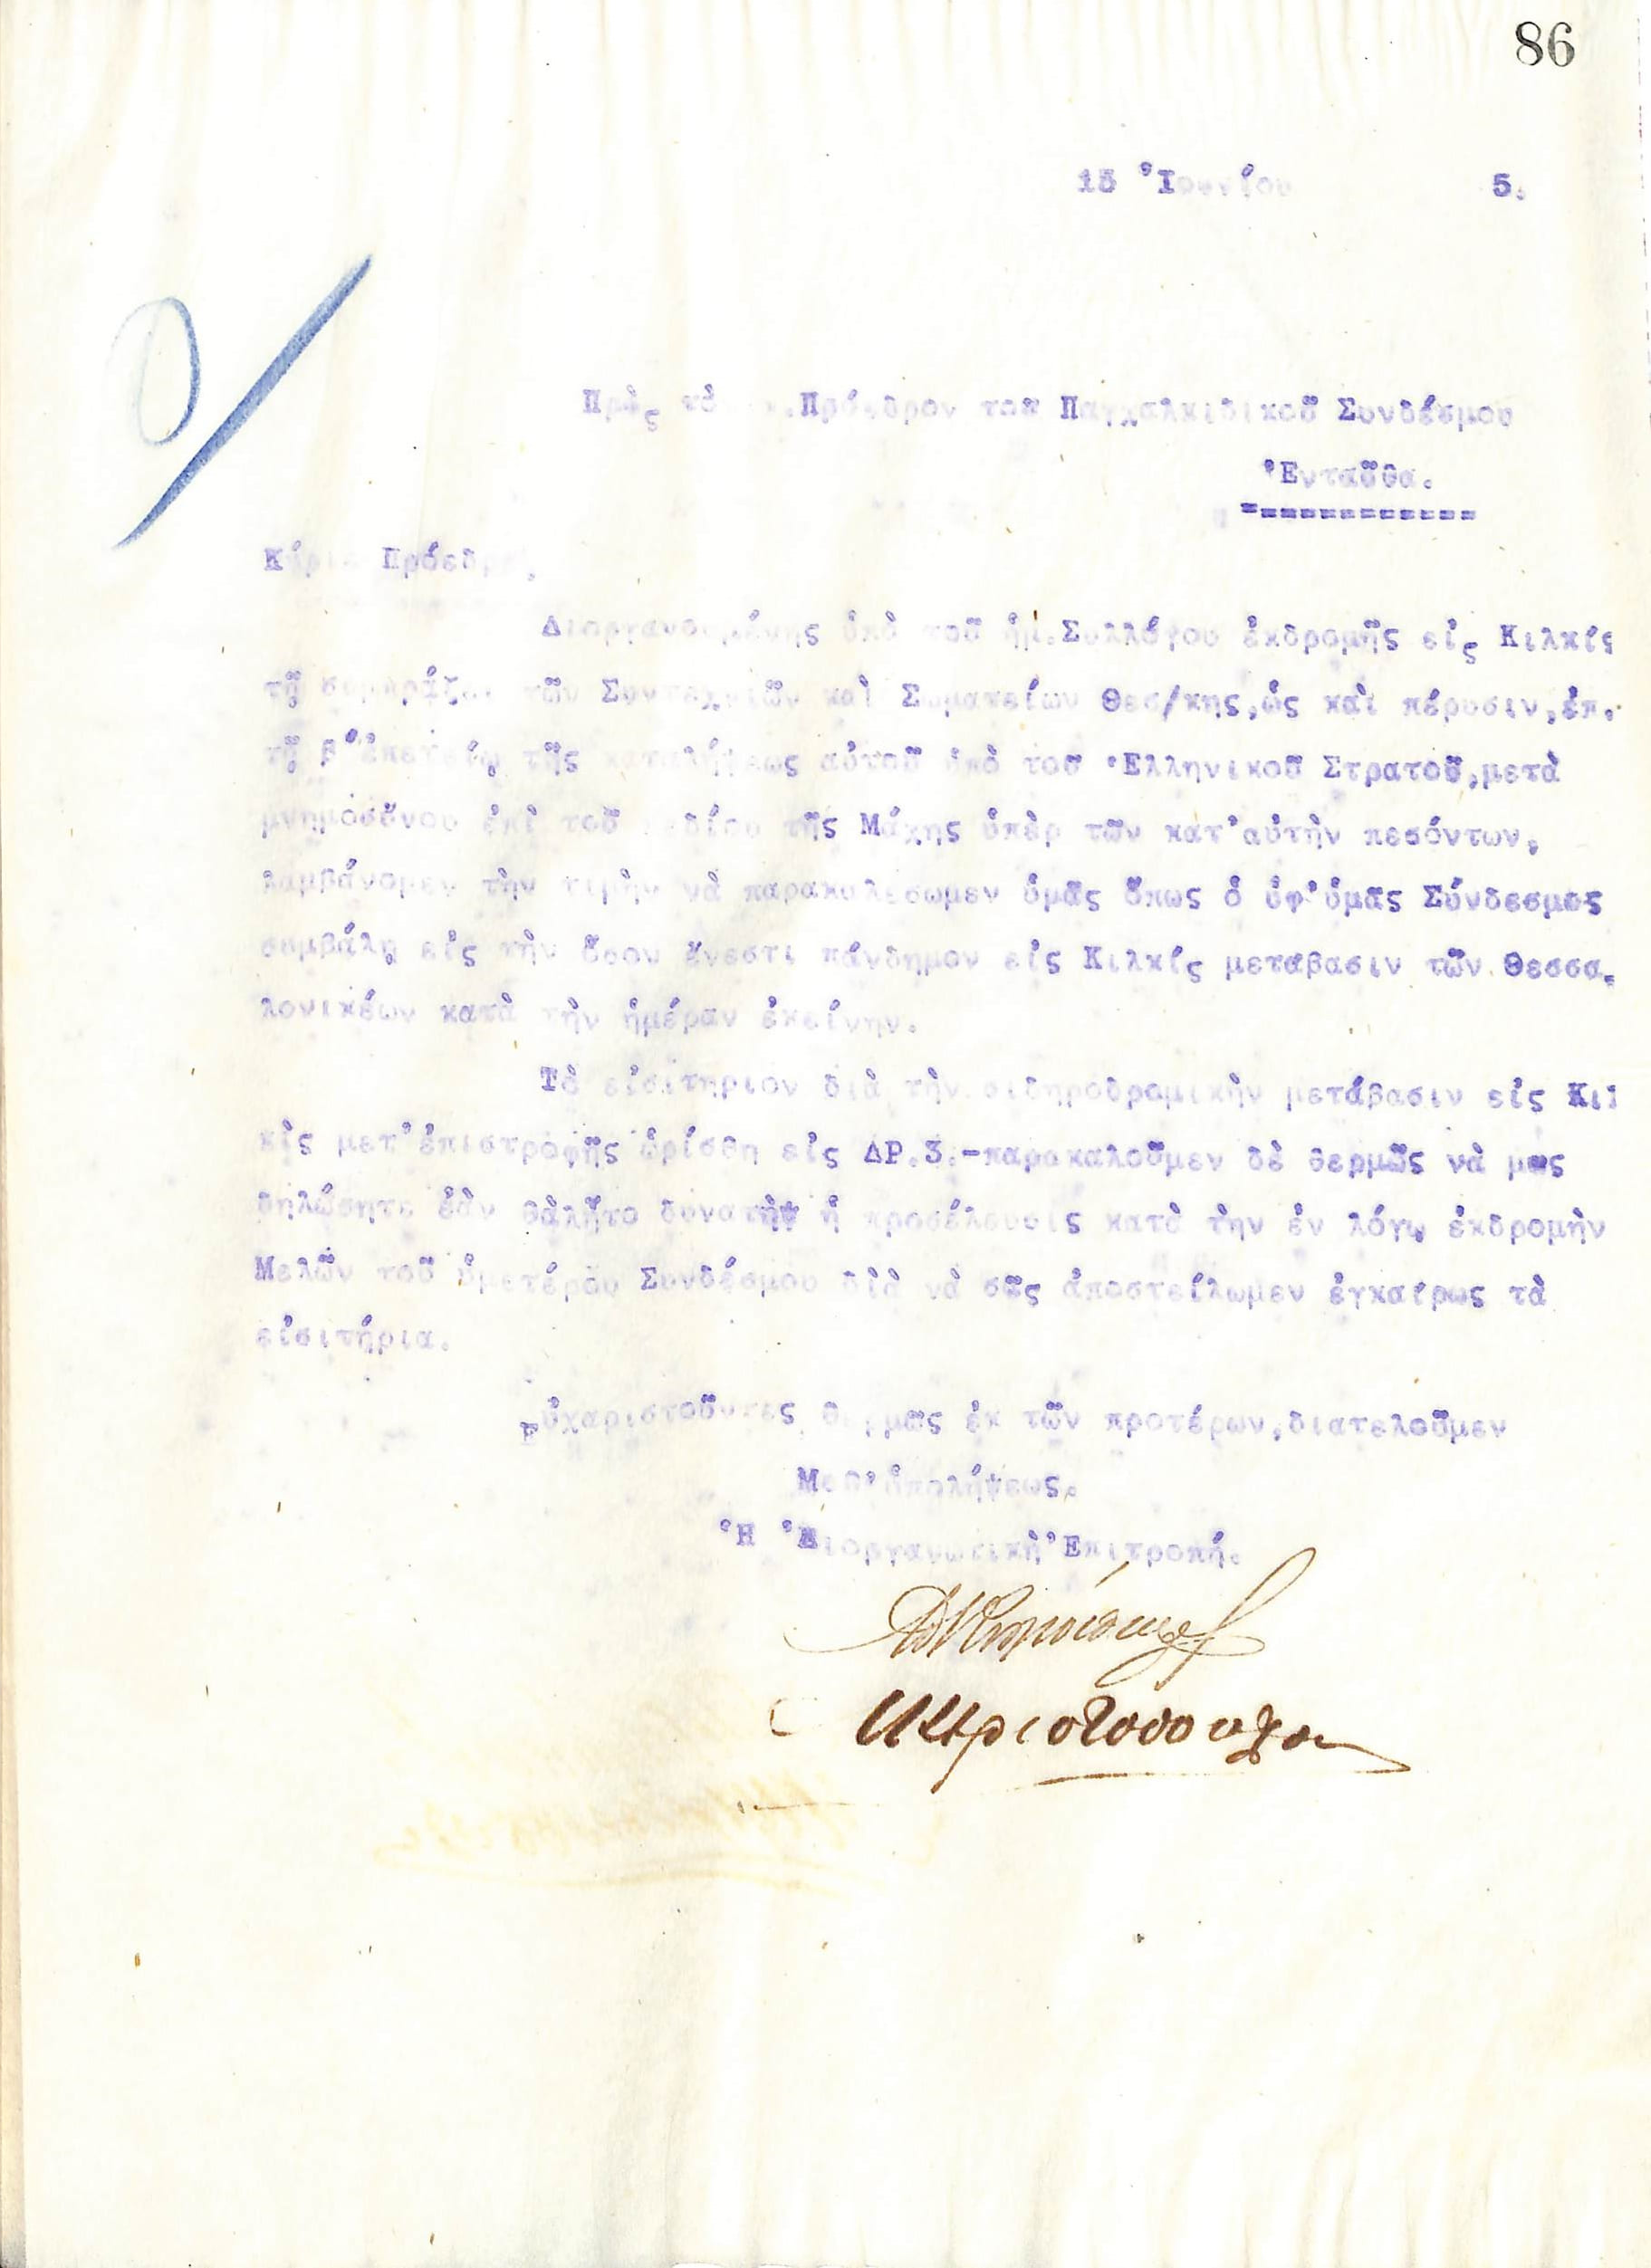 86
15 Ἰουνίου 5.
Πρὸς τὸ .Πρόεδρον τοῦ Παγχαλκιδικοῦ Συνδέσμου
Ἐνταῦθα.
Κύριε Πρόεδρε,
Διοργανουμένης ὑπὸ τοῦ ἡμ.Συλλόγου ἐκδρομῆς εἰς Κιλκίς
τῇ τῶν Συντεχνιῶν καὶ Σωματείων Θεσ/κης,ὡς καὶ πέρυσιν,ἐπ.
τῇ β' ἐπετείῳ τῆς καταλήψεως αὐτοῦ ὑπὸ τοῦ Ἑλληνικοῦ Στρατοῦ,μετὰ
μνημοσύνου ἐπὶ τοῦ πεδίου τῆς Μάχης ὑπὲρ τῶν κατ'αὐτὴν πεσόντων,
λαμβάνομεν τὴν τιμὴν νὰ παρακαλέσωμεν ὑμᾶς ὅπως ὁ ὑφ'ὑμᾶς Σύνδεσμος
συμβάλῃ εἰς τὴν ὅσον ἔνεστι πάνδημον εἰς Κιλκίς μετάβασιν τῶν Θεσσα-
λονικέων κατὰ τὴν ἡμέραν ἐκείνην.
Τὸ εἰσιτήριον διὰ τὴν σιδηροδρομικὴν μετάβασιν εἰς Κιλ
κὶς μετ'ἐπιστροφῆς ὡρίσθη εἰς ΔΡ.3.-παρακαλοῦμεν δὲ θερμῶς νὰ μας
δηλώσητε ἐὰν θὰἦτο δυνατὴ ἡ προσέλευσις κατὰ τὴν ἐν λόγῳ ἐκδρομὴν
Μελῶν τοῦ ὑμετέρου Συνδέσμου διὰ νὰ σᾶς ἀποστείλωμεν ἐγκαίρως τὰ
εἰσιτήρια.
Εὐχαριστοῦντες θερμῶς ἐκ τῶν προτέρων,διατελοῦμεν
Μεθ'ὑπολήψεως.
Ἡ Διοργανωτικὴ Ἐπιτροπή.